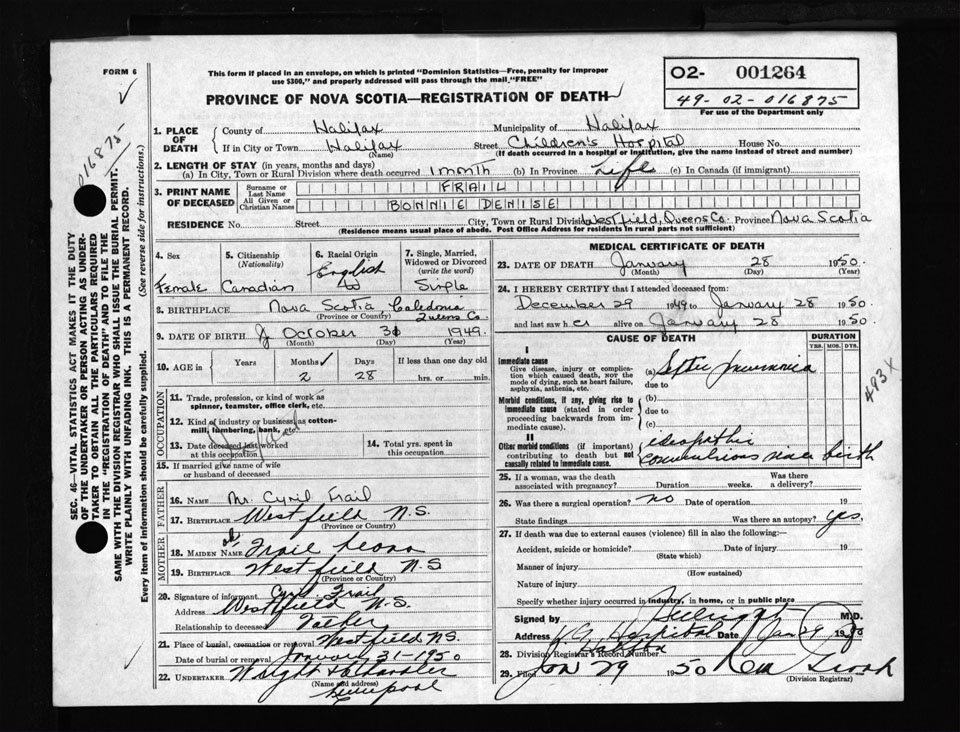 FORM 6
This form if placed in an envelope, on which is printed "Dominion Statistics—Free, penalty for improper
use $300," and properly addressed will pass through the mail "FREE"
PROVINCE OF NOVA SCOTIA—REGISTRATION OF DEATH
02- 001264
49-02-016875
For use of the Department only
016875
SEC. 46—VITAL STATISTICS ACT MAKES IT THE DUTY
OF THE UNDERTAKER OR PERSON ACTING AS UNDER-
TAKER TO OBTAIN ALL THE PARTICULARS REQUIRED
IN THE "REGISTRATION OF DEATH" AND TO FILE THE
SAME WITH THE DIVISION REGISTRAR WHO SHALL ISSUE THE BURIAL PERMIT.
WRITE PLAINLY WITH UNFADING INK. THIS IS A PERMANENT RECORD.
Every item of information should be carefully supplied. (See reverse side for instructions.)
1. PLACE OF DEATH
County of Halifax Municipality of Halifax
If in City or Town Halifax Street Children's Hospital House No.
(Name) (If death occurred in a hospital or institution, give the name instead of street and number)
2. LENGTH OF STAY (in years, months and days)
(a) In City, Town or Rural Division where death occurred 1 month (b) In Province Life (c) In Canada (if immigrant)
3. PRINT NAME OF DECEASED
Surname or Last Name FRAIL
All Given or Christian Names BONNIE DENISE
RESIDENCE No. Street City, Town or Rural Division Westfield, Queens Co. Province Nova Scotia
(Residence means usual place of abode. Post Office Address for residents in rural parts not sufficient)
4. Sex
Female
5. Citizenship
(Nationality)
Canadian
6. Racial Origin
English
7. Single, Married,
Widowed or Divorced
(write the word)
Single
8. BIRTHPLACE Nova Scotia Caledonia
(Province or Country) Queens Co.
9. DATE OF BIRTH October 31 1949
(Month) (Day) (Year)
10. AGE in
Years Months Days If less than one day old
2 28 hrs. or min.
OCCUPATION
11. Trade, profession, or kind of work as
spinner, teamster, office clerk, etc.
12. Kind of industry or business as cotten-
mill, lumbering, bank, etc.
13. Date deceased last worked
at this occupation
14. Total yrs. spent in
this occupation
15. If married give name of wife
or husband of deceased
FATHER
16. Name Mr. Cyril Frail
17. Birthplace Westfield N.S.
(Province or Country)
MOTHER
18. Maiden Name Frail Leona
19. Birthplace Westfield N.S
(Province or Country)
20. Signature of informant Cyril Frail
Address Westfield N.S.
Relationship to deceased Father
21. Place of burial, cremation or removal Westfield N.S.
Date of burial or removal January 31-1950
22. UNDERTAKER Wright &
(Name and address)
Liverpool
MEDICAL CERTIFICATE OF DEATH
23. DATE OF DEATH January 28 1950.
(Month) (Day) (Year)
24. I HEREBY CERTIFY that I attended deceased from:
December 29 1949 to January 28 1950.
and last saw her alive on January 28 1950.
CAUSE OF DEATH
DURATION
YRS. MOS. DYS.
I
Immediate cause
Give disease, injury or compli-
cation which caused death, NOT the
mode of dying, such as heart failure,
asphyxia, asthenia, etc.
(a) Septic pneumonia
due to
Morbid conditions, if any, giving rise to
immediate cause (stated in order
proceeding backwards from im-
mediate cause).
(b)
due to
(c)
II
Other morbid conditions (if important)
contributing to death but not
causally related to immediate cause.
ideopathic
convulsions since birth
493 X
25. If a woman, was the death
associated with pregnancy? Duration weeks. Was there
a delivery?
26. Was there a surgical operation? no Date of operation 19
State findings Was there an autopsy? yes.
27. If death was due to external causes (violence) fill in also the following:
Accident, suicide or homicide? Date of injury 19
(State which)
Manner of injury
(How sustained)
Nature of injury
Specify whether injury occurred in industry, in home, or in public place
Signed by M.D.
Address V.G. Hospital Date Jan 29 1950
Halifax
28. Division Registrar's Record Number
29. Filed Jan 29 1950
(Division Registrar)